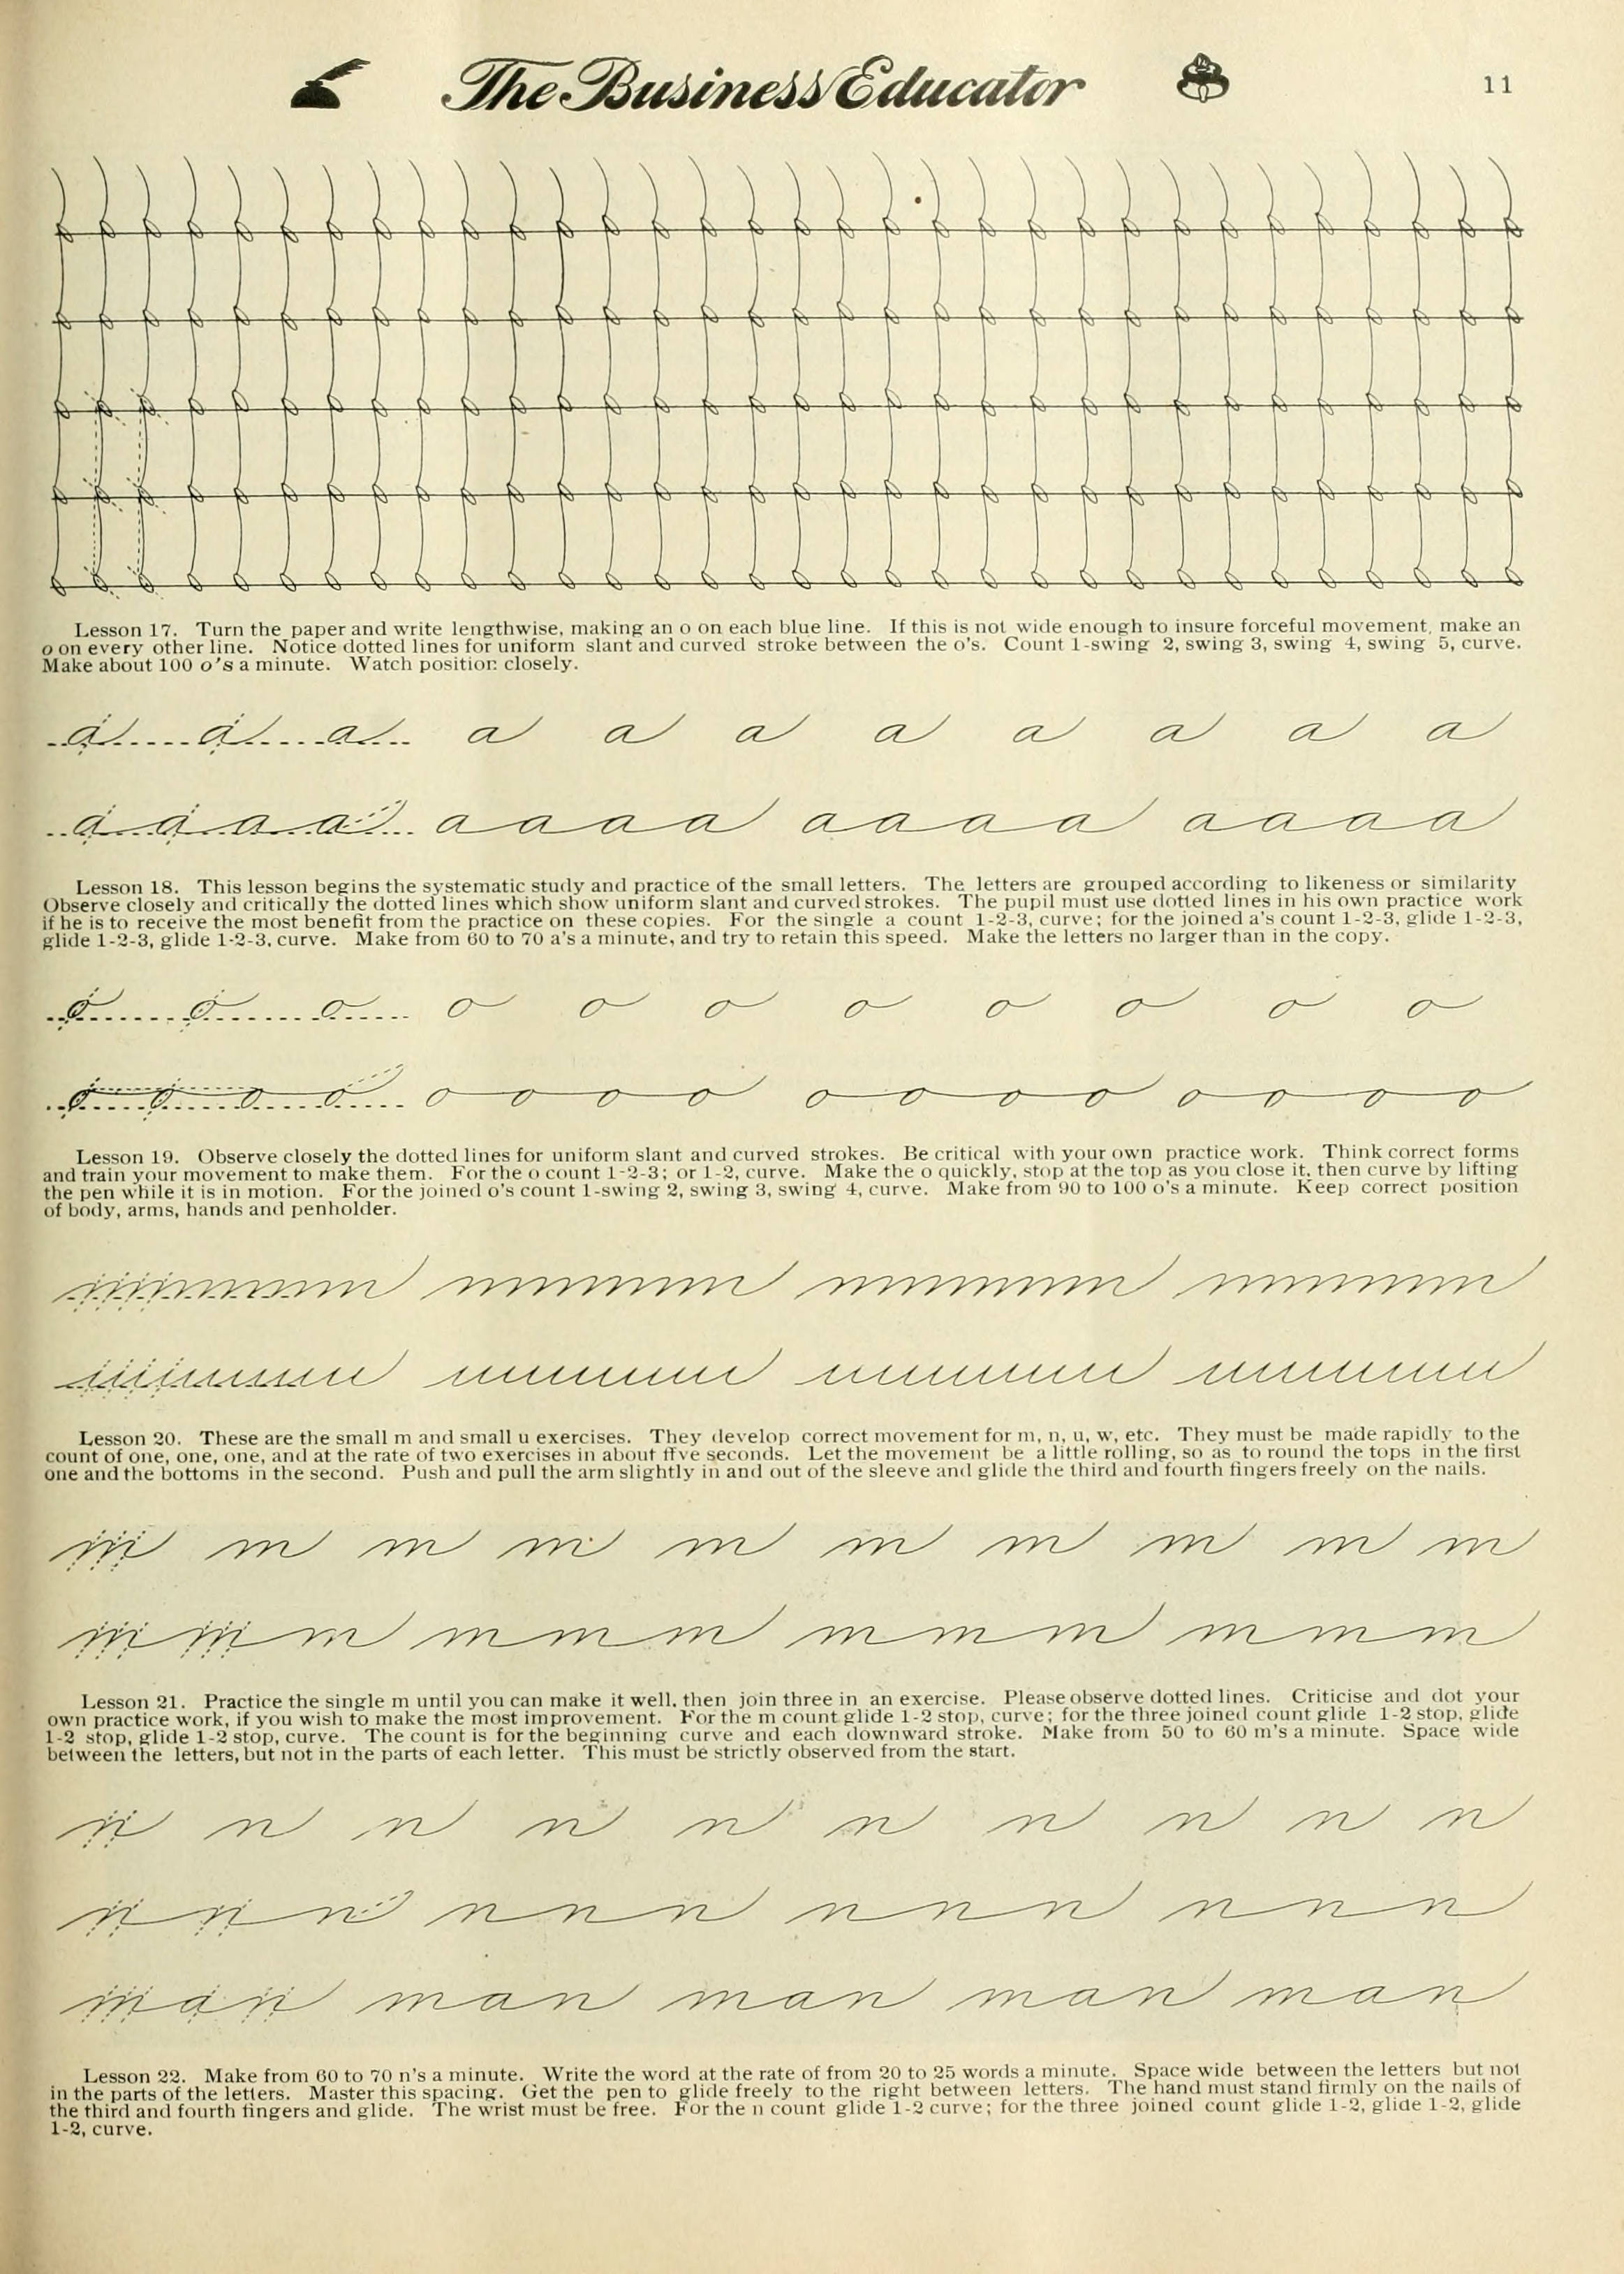 The Business Educator
11
Lesson 17. Turn the paper and write lengthwise, making an o on each blue line. If this is not wide enough to insure forceful movement, make an
o on every other line. Notice dotted lines for uniform slant and curved stroke between the o's. Count 1-swing 2, swing 3, swing 4, swing 5, curve.
Make about 100 o's a minute. Watch position closely.
a a a a a a a a a a a
a a a a a a a a a a a a a a a a
Lesson 18. This lesson begins the systematic study and practice of the small letters. The letters are grouped according to likeness or similarity
Observe closely and critically the dotted lines which show uniform slant and curved strokes. The pupil must use dotted lines in his own practice work
if he is to receive the most benefit from the practice on these copies. For the single a count 1-2-3, curve; for the joined a's count 1-2-3, glide 1-2-3,
glide 1-2-3, glide 1-2-3, curve. Make from 60 to 70 a's a minute, and try to retain this speed. Make the letters no larger than in the copy.
o o o o o o o o o o o
o o o o o o o o o o o o o o o o
Lesson 19. Observe closely the dotted lines for uniform slant and curved strokes. Be critical with your own practice work. Think correct forms
and train your movement to make them. For the o count 1-2-3; or 1-2, curve. Make the o quickly, stop at the top as you close it, then curve by lifting
the pen while it is in motion. For the joined o's count 1-swing 2, swing 3, swing 4, curve. Make from 90 to 100 o's a minute. Keep correct position
of body, arms, hands and penholder.
Lesson 20. These are the small m and small u exercises. They develop correct movement for m, n, u, w, etc. They must be made rapidly to the
count of one, one, one, and at the rate of two exercises in about ffve seconds. Let the movement be a little rolling, so as to round the tops in the first
one and the bottoms in the second. Push and pull the arm slightly in and out of the sleeve and glide the third and fourth fingers freely on the nails.
m m m m m m m m m m
m m m m m m m m m m m m
Lesson 21. Practice the single m until you can make it well, then join three in an exercise. Please observe dotted lines. Criticise and dot your
own practice work, if you wish to make the most improvement. For the m count glide 1-2 stop, curve; for the three joined count glide 1-2 stop, glide
1-2 stop, glide 1-2 stop, curve. The count is for the beginning curve and each downward stroke. Make from 50 to 60 m's a minute. Space wide
between the letters, but not in the parts of each letter. This must be strictly observed from the start.
n n n n n n n n n n
n n n n n n n n n n n n
man man man man man
Lesson 22. Make from 60 to 70 n's a minute. Write the word at the rate of from 20 to 25 words a minute. Space wide between the letters but not
in the parts of the letters. Master this spacing. Get the pen to glide freely to the right between letters. The hand must stand firmly on the nails of
the third and fourth fingers and glide. The wrist must be free. For the n count glide 1-2 curve; for the three joined count glide 1-2, glide 1-2, glide
1-2, curve.